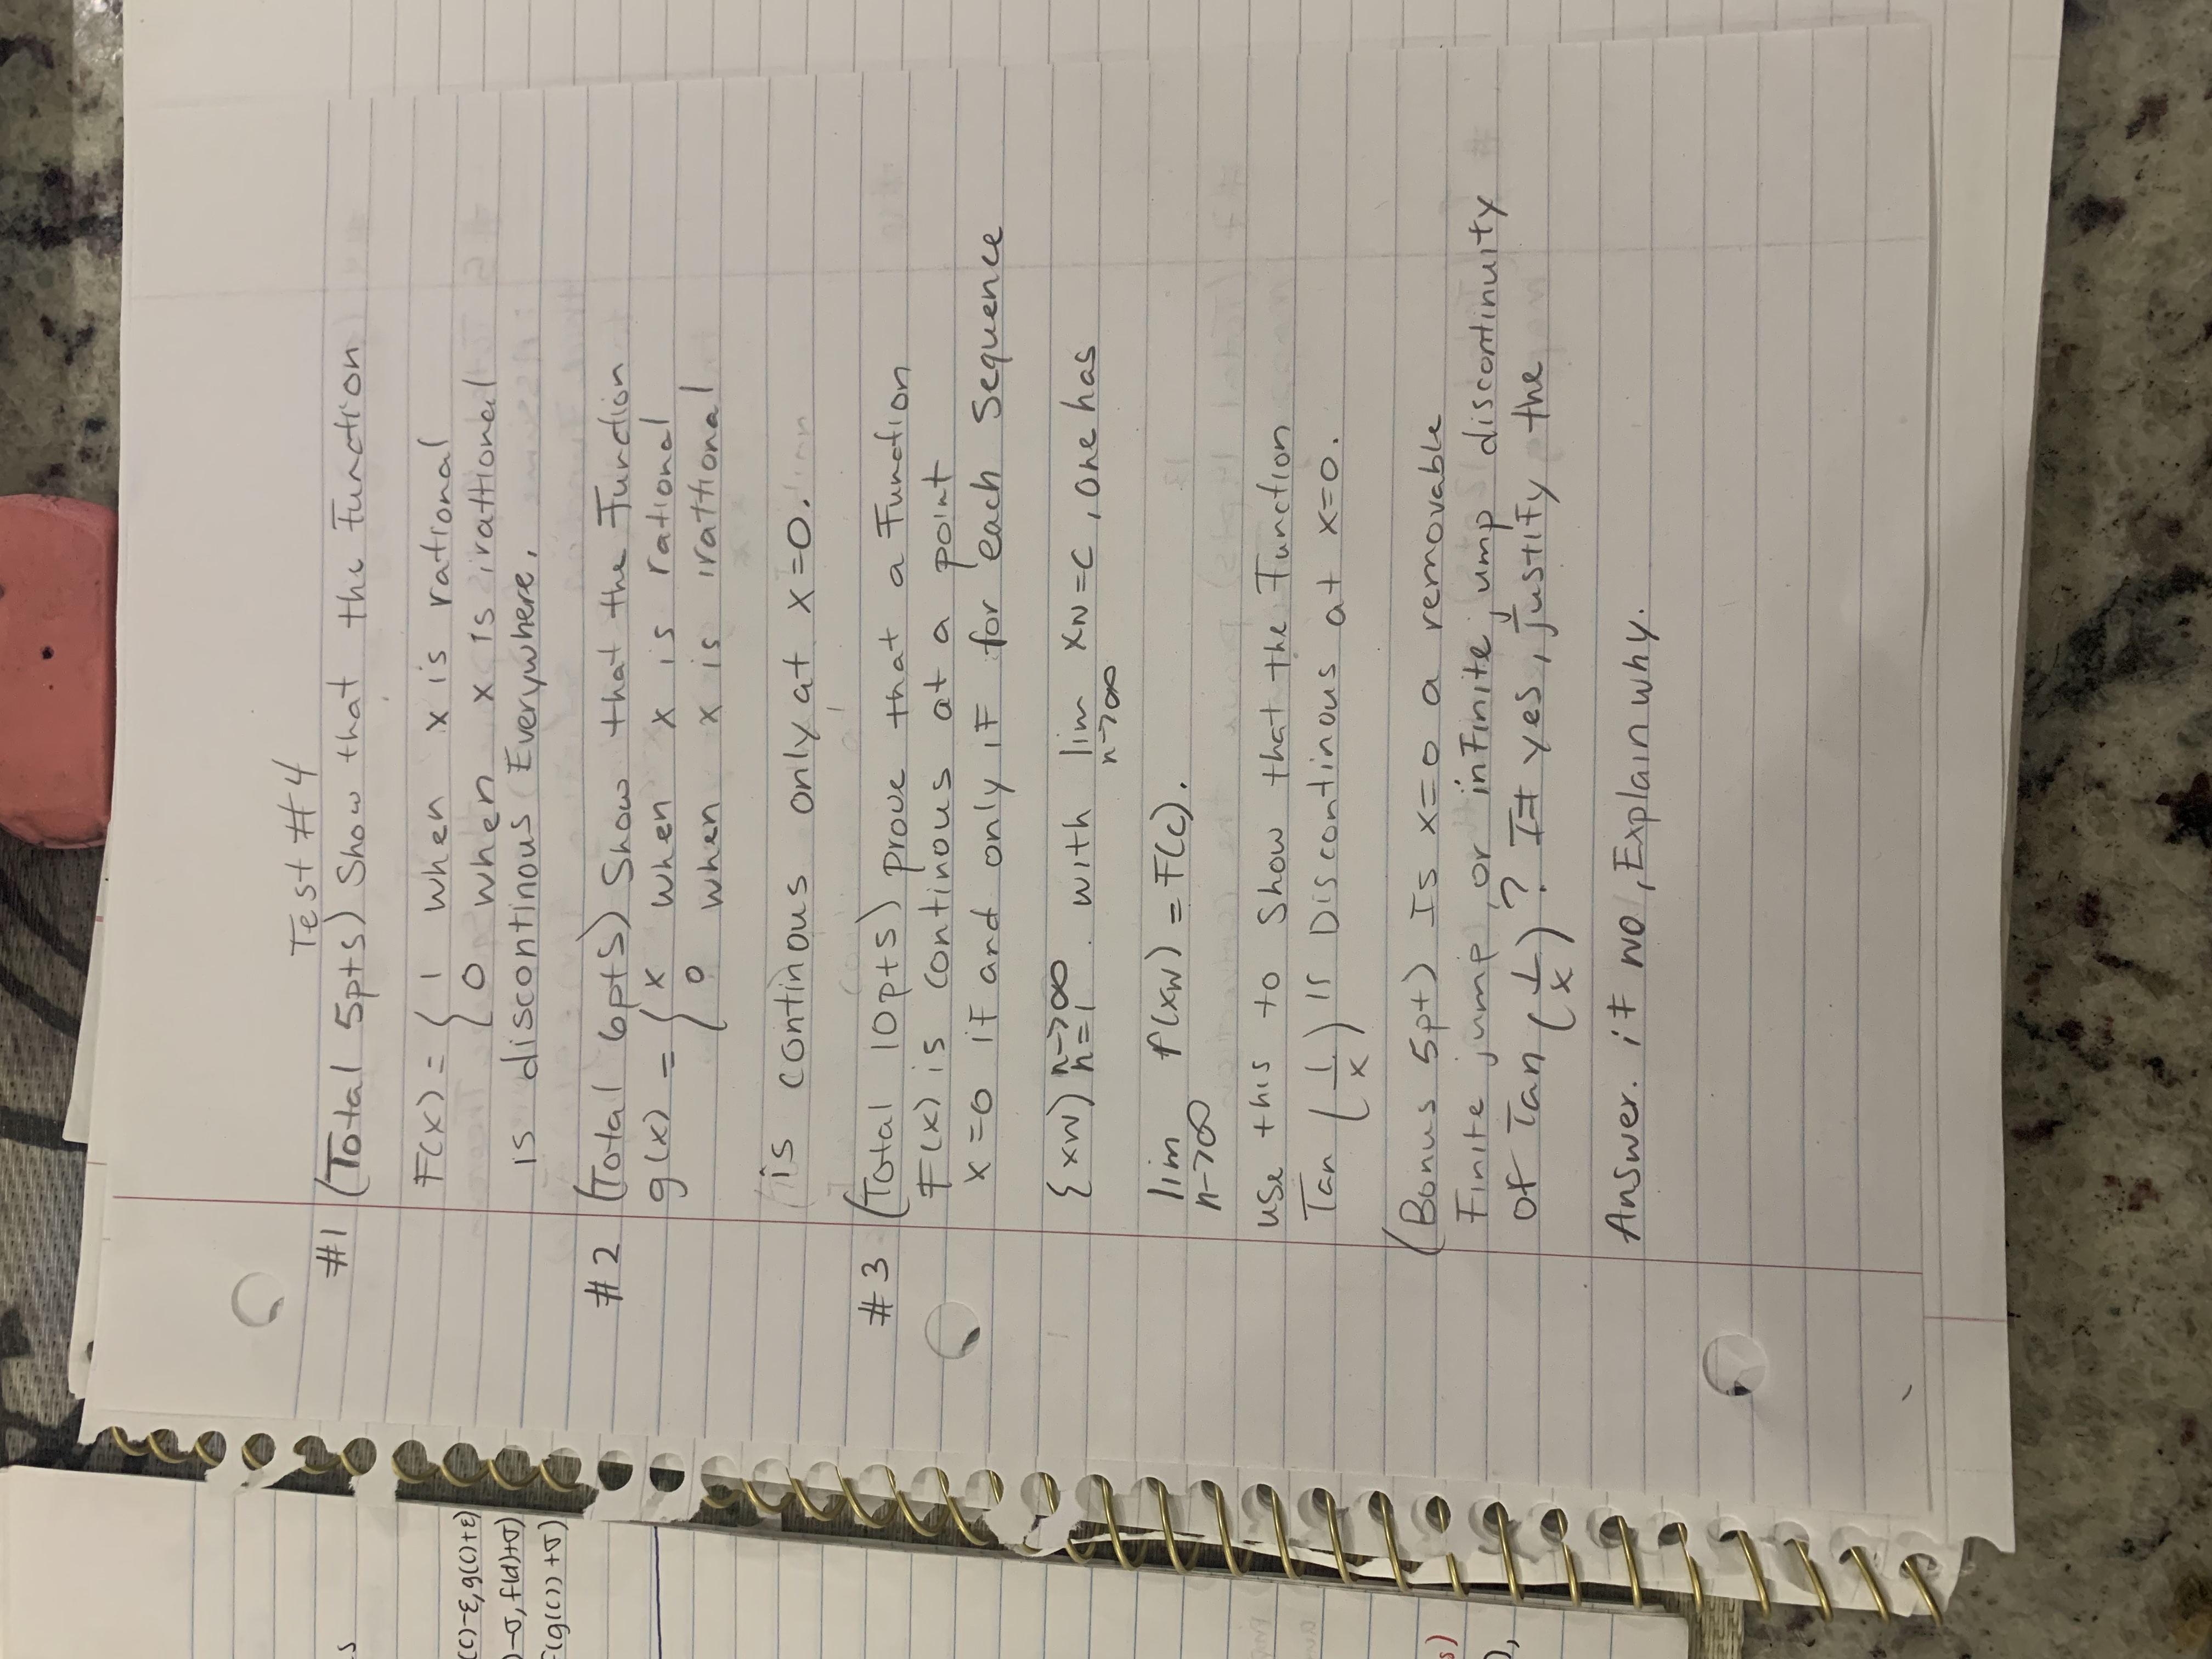 s
(c)-ε, g(c)+ε)
)-σ, f(d)+σ)
f(g(c)) +σ)
s)
),
Test #4
#1 (Total 5pts) Show that the Function
F(x) = { 1 when x is rational
0 when x is irattional
is discontinous Everywhere.
#2 (Total 6pts) Show that the Function
g(x) = { x when x is rational
0 when x is irattional
is continous only at x=0.
#3 (Total 10pts) prove that a Function
F(x) is continous at a point
x=0 if and only if for each Sequence
{xN) n→∞ n=1 . with lim n→∞ xN=c, one has
lim n→∞ f(xN) = F(c).
use this to Show that the Function
Tan (1/x) is Discontinous at x=0.
(Bonus 5pt) Is x=0 a removable
Finite jump, or infinite jump discontinuity
of Tan (1/x)? If yes, justify the
Answer. if no, Explain why.